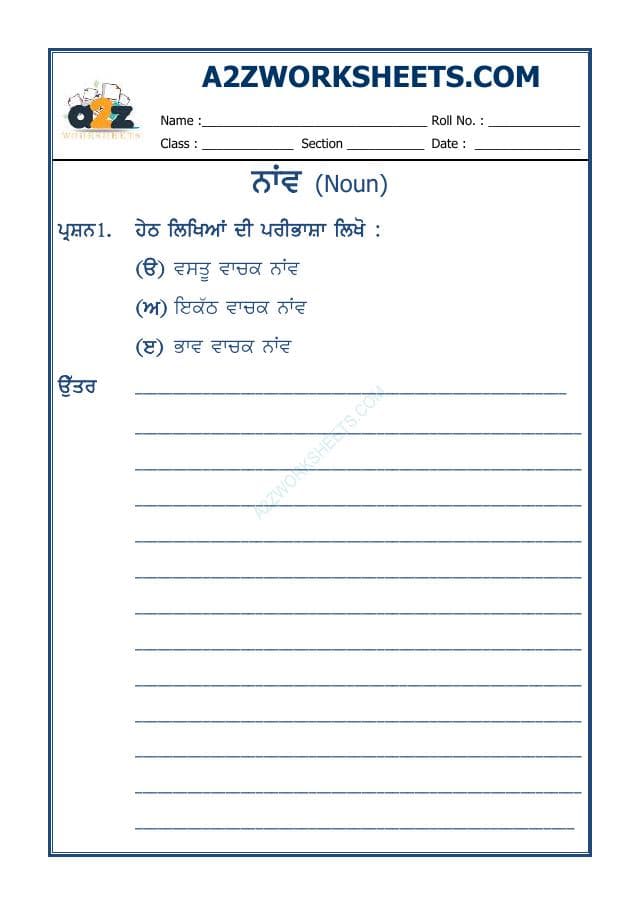 A2ZWORKSHEETS.COM
a2z
WORKSHEETS
Name :______________ Roll No. : ______________
Class : ______________ Section ____________ Date : ______________
ਨਾਂਵ (Noun)
ਪ੍ਰਸ਼ਨ1. ਹੇਠ ਲਿਖਿਆਂ ਦੀ ਪਰੀਭਾਸ਼ਾ ਲਿਖੋ :
(ੳ) ਵਸਤੂ ਵਾਚਕ ਨਾਂਵ
(ਅ) ਇਕੱਠ ਵਾਚਕ ਨਾਂਵ
(ੲ) ਭਾਵ ਵਾਚਕ ਨਾਂਵ
ਉੱਤਰ
A2ZWORKSHEETS.COM